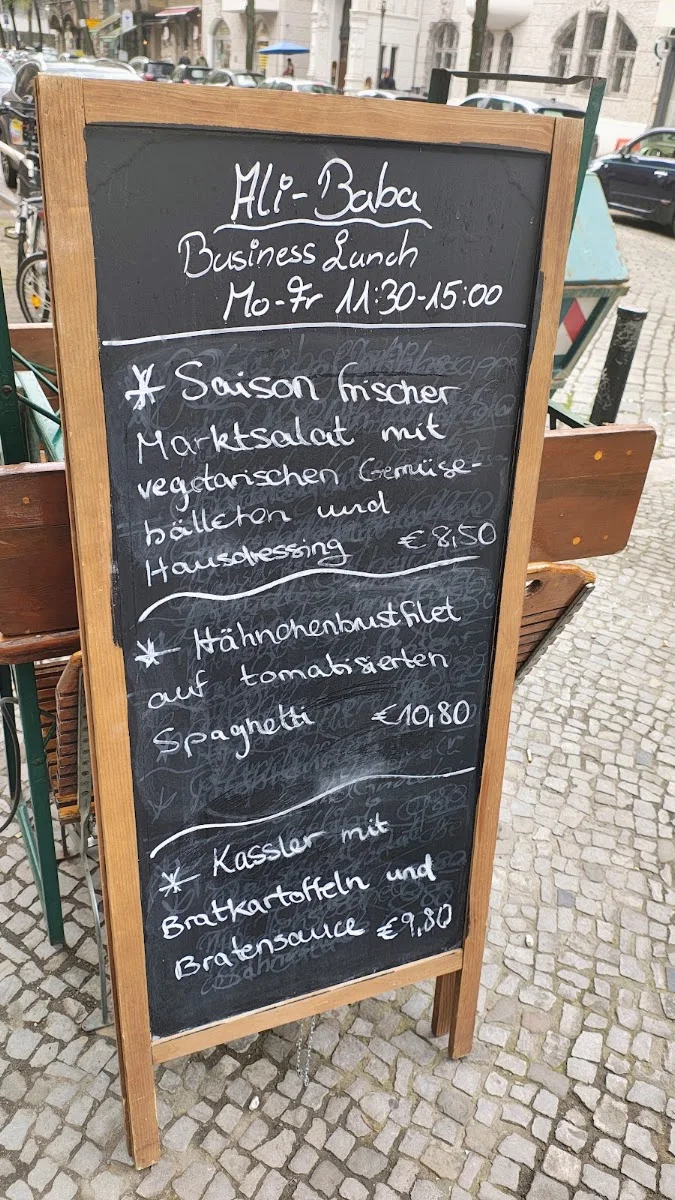 Ali-Baba
Business Lunch
Mo-Fr 11:30-15:00
* Saison frischer
Marktsalat mit
vegetarischen Gemüse-
bällchen und
Hausdressing €8,50
* Hähnchenbrustfilet
auf tomatisierten
Spaghetti €10,80
* Kassler mit
Bratkartoffeln und
Bratensauce €9,80